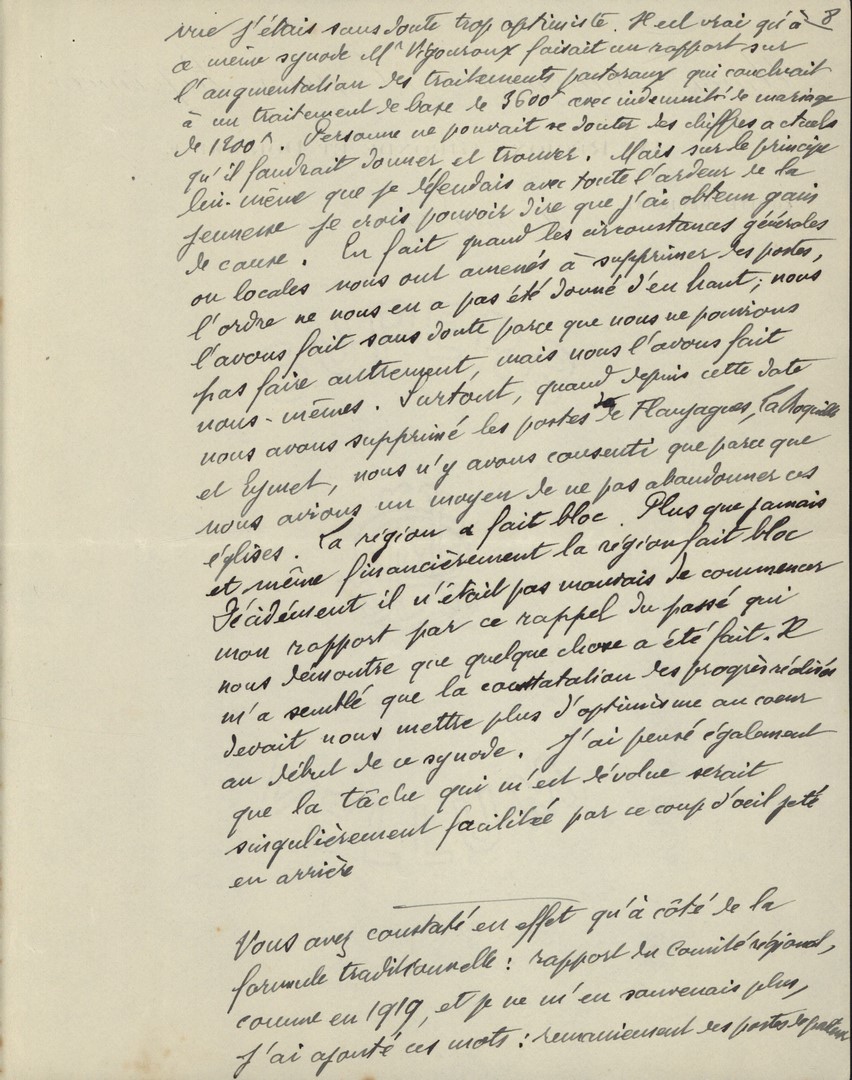 8
vue j'étais sans doute trop optimiste. Il est vrai qu'à
ce même synode Mr Vigouroux faisait un rapport sur
l'augmentation des traitements pastoraux qui concluait
à un traitement de base de 3600f avec indemnité de mariage
de 1200f. Personne ne pouvait se douter des chiffres actuels
qu'il faudrait donner et trouver. Mais sur le principe
lui-même que je défendais avec toute l'ardeur de la
jeunesse je crois pouvoir dire que j'ai obtenu gain
de cause. En fait quand les circonstances générales
ou locales nous ont amenés à supprimer des postes,
l'ordre ne nous en a pas été donné d'en haut; nous
l'avons fait sans doute parce que nous ne pouvions
pas faire autrement, mais nous l'avons fait
nous-mêmes. Surtout, quand depuis cette date
nous avons supprimé les postes de Flaujagues, La Roquille
et Eymet, nous n'y avons consenti que parce que
nous avions un moyen de ne pas abandonner ces
églises. La région a fait bloc. Plus que jamais
et même financièrement la région fait bloc
Décidément il n'était pas mauvais de commencer
mon rapport par ce rappel du passé qui
nous démontre que quelque chose a été fait. Il
m'a semblé que la constatation des progrès réalisés
devait nous mettre plus d'optimisme au coeur
au début de ce synode. J'ai pensé également
que la tâche qui m'est dévolue serait
singulièrement facilitée par ce coup d'oeil jeté
en arrière
Vous avez constaté en effet qu'à côté de la
formule traditionnelle : rapport du Comité régional,
comme en 1919, et je ne m'en souvenais plus,
j'ai ajouté ces mots : remaniement des postes de pasteur